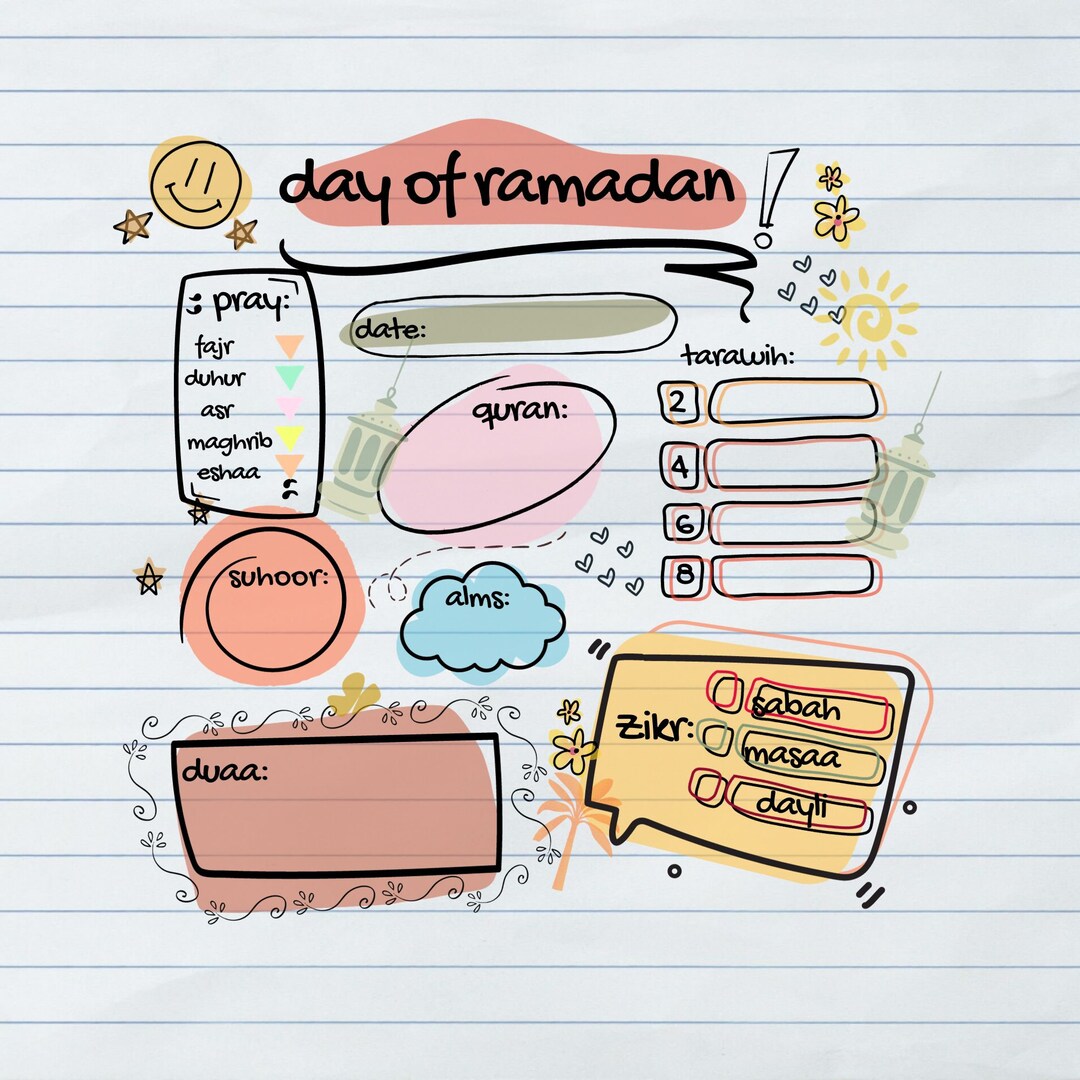 day of ramadan!
pray:
fajr
duhur
asr
maghrib
eshaa
date:
quran:
tarawih:
2
4
6
8
suhoor:
alms:
duaa:
zikr:
sabah
masaa
dayli